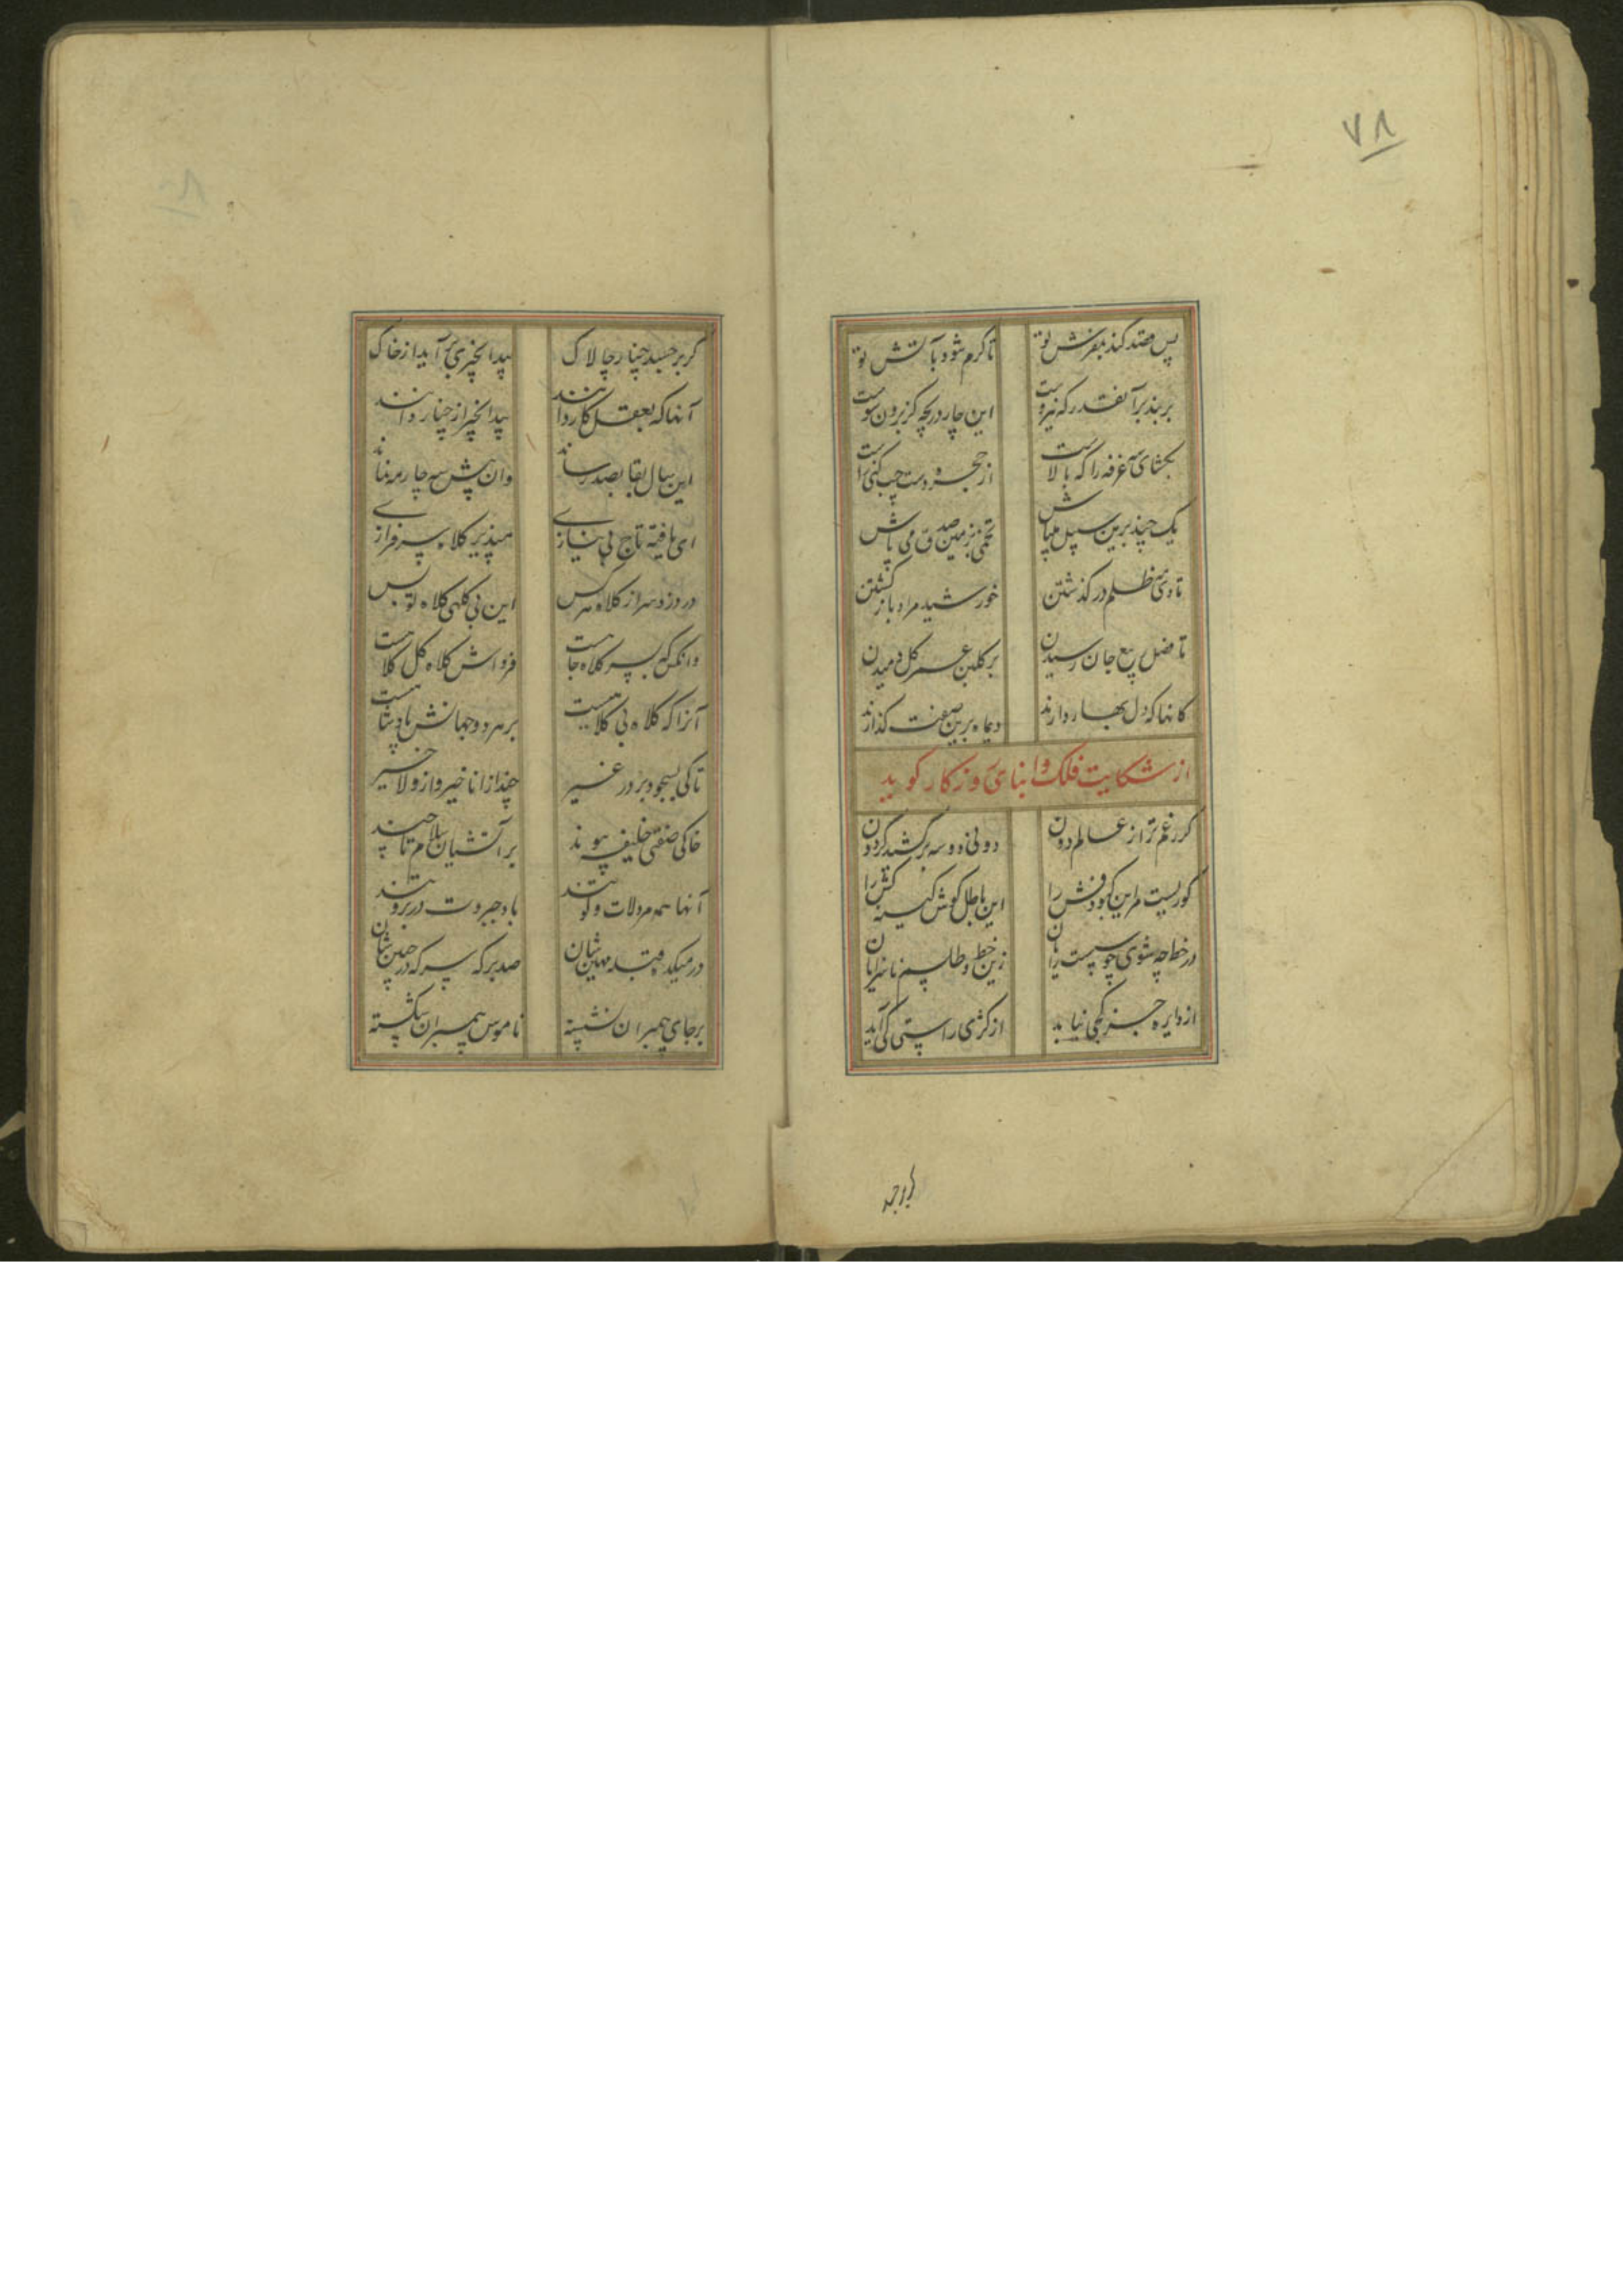 ۷۸
پس قصد کند بفرش تو
تا گرم شود بآتش تو
بر بند بر آنقدر که نیروست
این چار دریچه کز برون سوست
بگشای سه غرفه را که بالاست
از حجره دست چپ کنی راست
یک چند برین سپیل میباش
تخمی بزمین صدق می پاش
تا دی ظلم در گذشتن
خورشید مراد باز گشتن
تا فصل ربیع جان رسیدن
بر گلبن عمر گل دمیدن
کانها که دل بهار دارند
دیماه برین صفت گذارند
از شکایت فلک و ابنای روزکار کوید
گر زغم تر از عالم دون
دولی و دو سه برکشید گردون
کوریست مر این کبود وش را
این باطل کوش کینه کش را
در خط چه شوی چو سپست رایان
زین خط و طلسم ناسرایان
از دایره جز کجی نیاید
از کژی راستی کی آید
گر بر جهد
گر بر جسد چنار چالاک
بید انجیری بر آید از خاک
آنها که بعقل کار دانند
بید انجیر از چنار دانند
این سال بقا بصد رساند
وان شش سه چار مه نماند
ای یافته تاج بی نیازی
مپذیر کلاه سر فرازی
در دزد سر از کلاه هر کس
این بی کلهی کلاه تو بس
وانکس که بسر کلاه جا هست
فرداش کلاه گل کلا هست
آنرا که کلاه بی کلاهیست
بر هر دو جهانش پادشاهیست
تا کی بسجود بر در غیر
چند از انا خیر و از ولا خیر
خاکی صفتی خلیفه پیوند
بر آتشیان سلام تا چند
آنها همه مرد لات و
باد جبروت در بروتند
در میکده قبله مهین شان
صد بر که سرکه در جبین شان
بر جای پیمبران نشسته
ناموس پیمبران شکسته